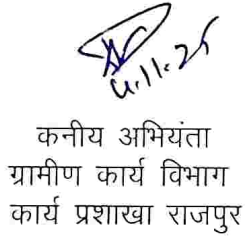 4.11.25
कनीय अभियंता
ग्रामीण कार्य विभाग
कार्य प्रशाखा राजपुर